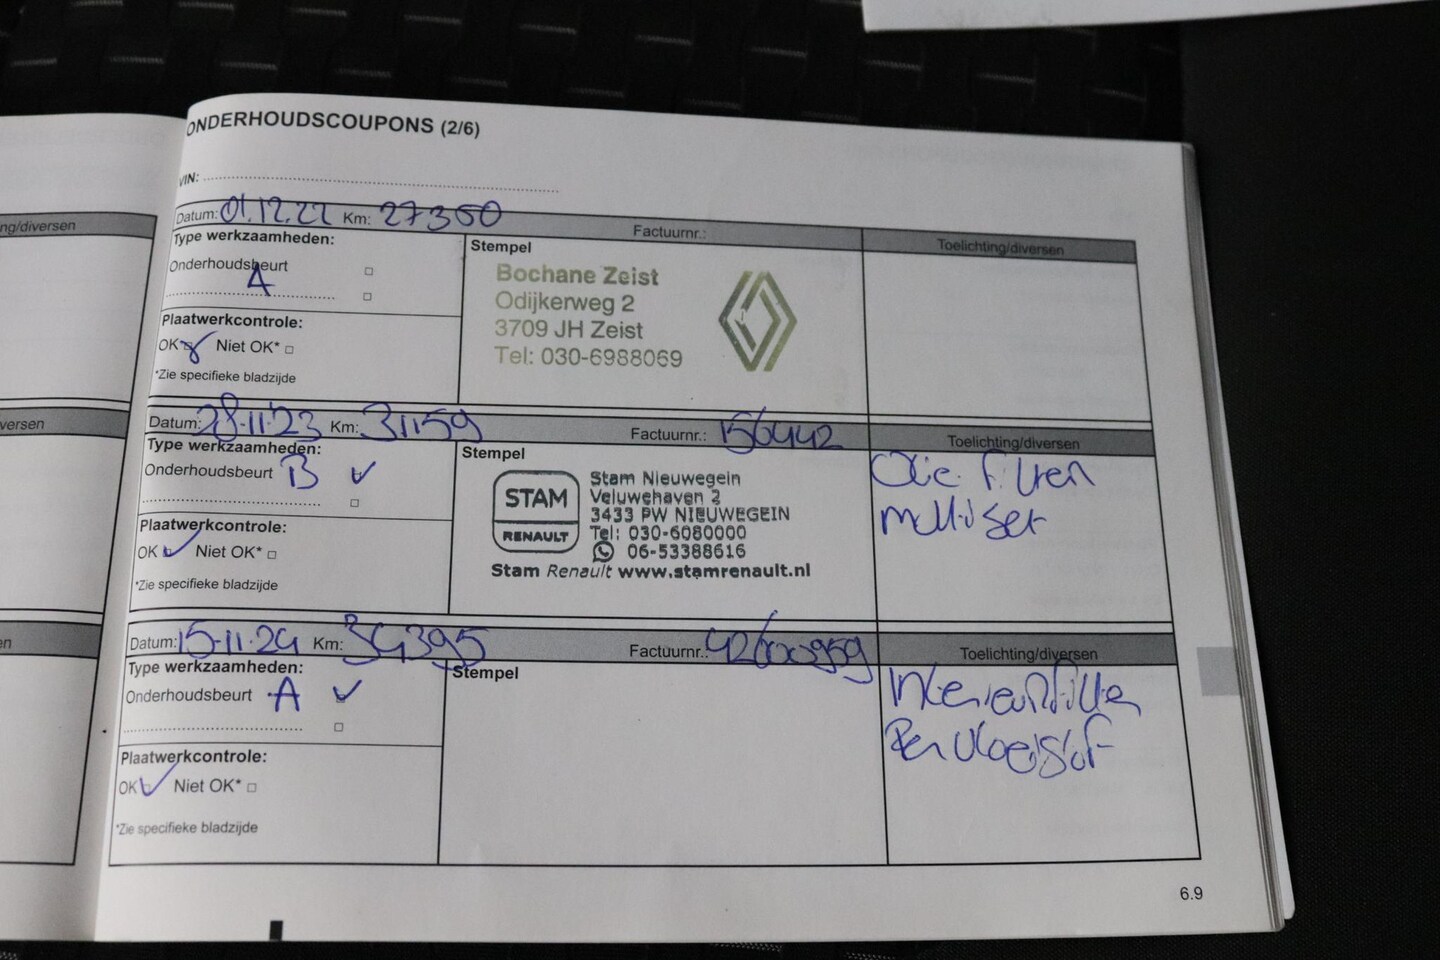 ONDERHOUDSCOUPONS (2/6)
VIN:
ng/diversen
Datum: 01.12.22 Km: 27350 Factuurnr.: Toelichting/diversen
Type werkzaamheden: Stempel
Onderhoudsbeurt
A
Plaatwerkcontrole:
OK Niet OK*
*Zie specifieke bladzijde
Bochane Zeist
Odijkerweg 2
3709 JH Zeist
Tel: 030-6988069
versen
Datum: 28-11-23 Km: 31159 Factuurnr.: 156442 Toelichting/diversen
Type werkzaamheden: Stempel
Onderhoudsbeurt B
Plaatwerkcontrole:
OK Niet OK*
*Zie specifieke bladzijde
STAM
RENAULT
Stam Nieuwegein
Veluwehaven 2
3433 PW NIEUWEGEIN
Tel: 030-6080000
06-53388616
Stam Renault www.stamrenault.nl
Olie filter
multi set
en
Datum: 15-11-24 Km: 34395 Factuurnr.: 42600959 Toelichting/diversen
Type werkzaamheden: Stempel
Onderhoudsbeurt A
Plaatwerkcontrole:
OK Niet OK*
*Zie specifieke bladzijde
Interieurfilter
Remvloeistof
6.9